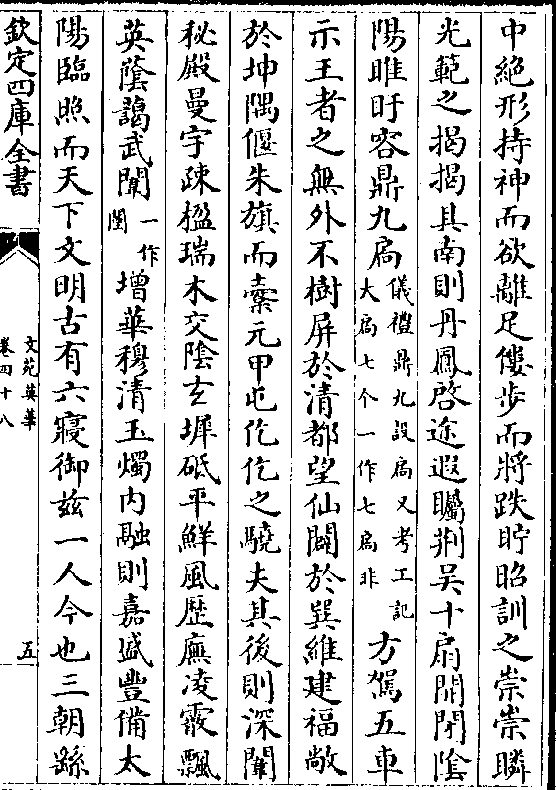 中絶形持神而欲離足僂步而將跌貯昭訓之崇崇瞵
光範之揭揭其南則丹鳳啓途遐矚荆吴十扇開閉陰
陽睢盱容鼎九扃儀禮鼎九設扃又考工記大扃七个一作七扃非方駕五車
示王者之無外不樹屏於清都望仙闢於巽維建福敞
於坤隅偃朱旗而櫜元甲屯仡仡之驍夫其後則深闈
秘殿曼宇疎楹瑞木交陰玄墀砥平鮮風歴廡凌霰飄
英蔭藹武闈一作闈增華穆清玉燭内融則嘉盛豐備太
陽臨照而天下文明古有六寢御兹一人今也三朝繇
欽定四庫全書
文苑英華
卷四十八
五